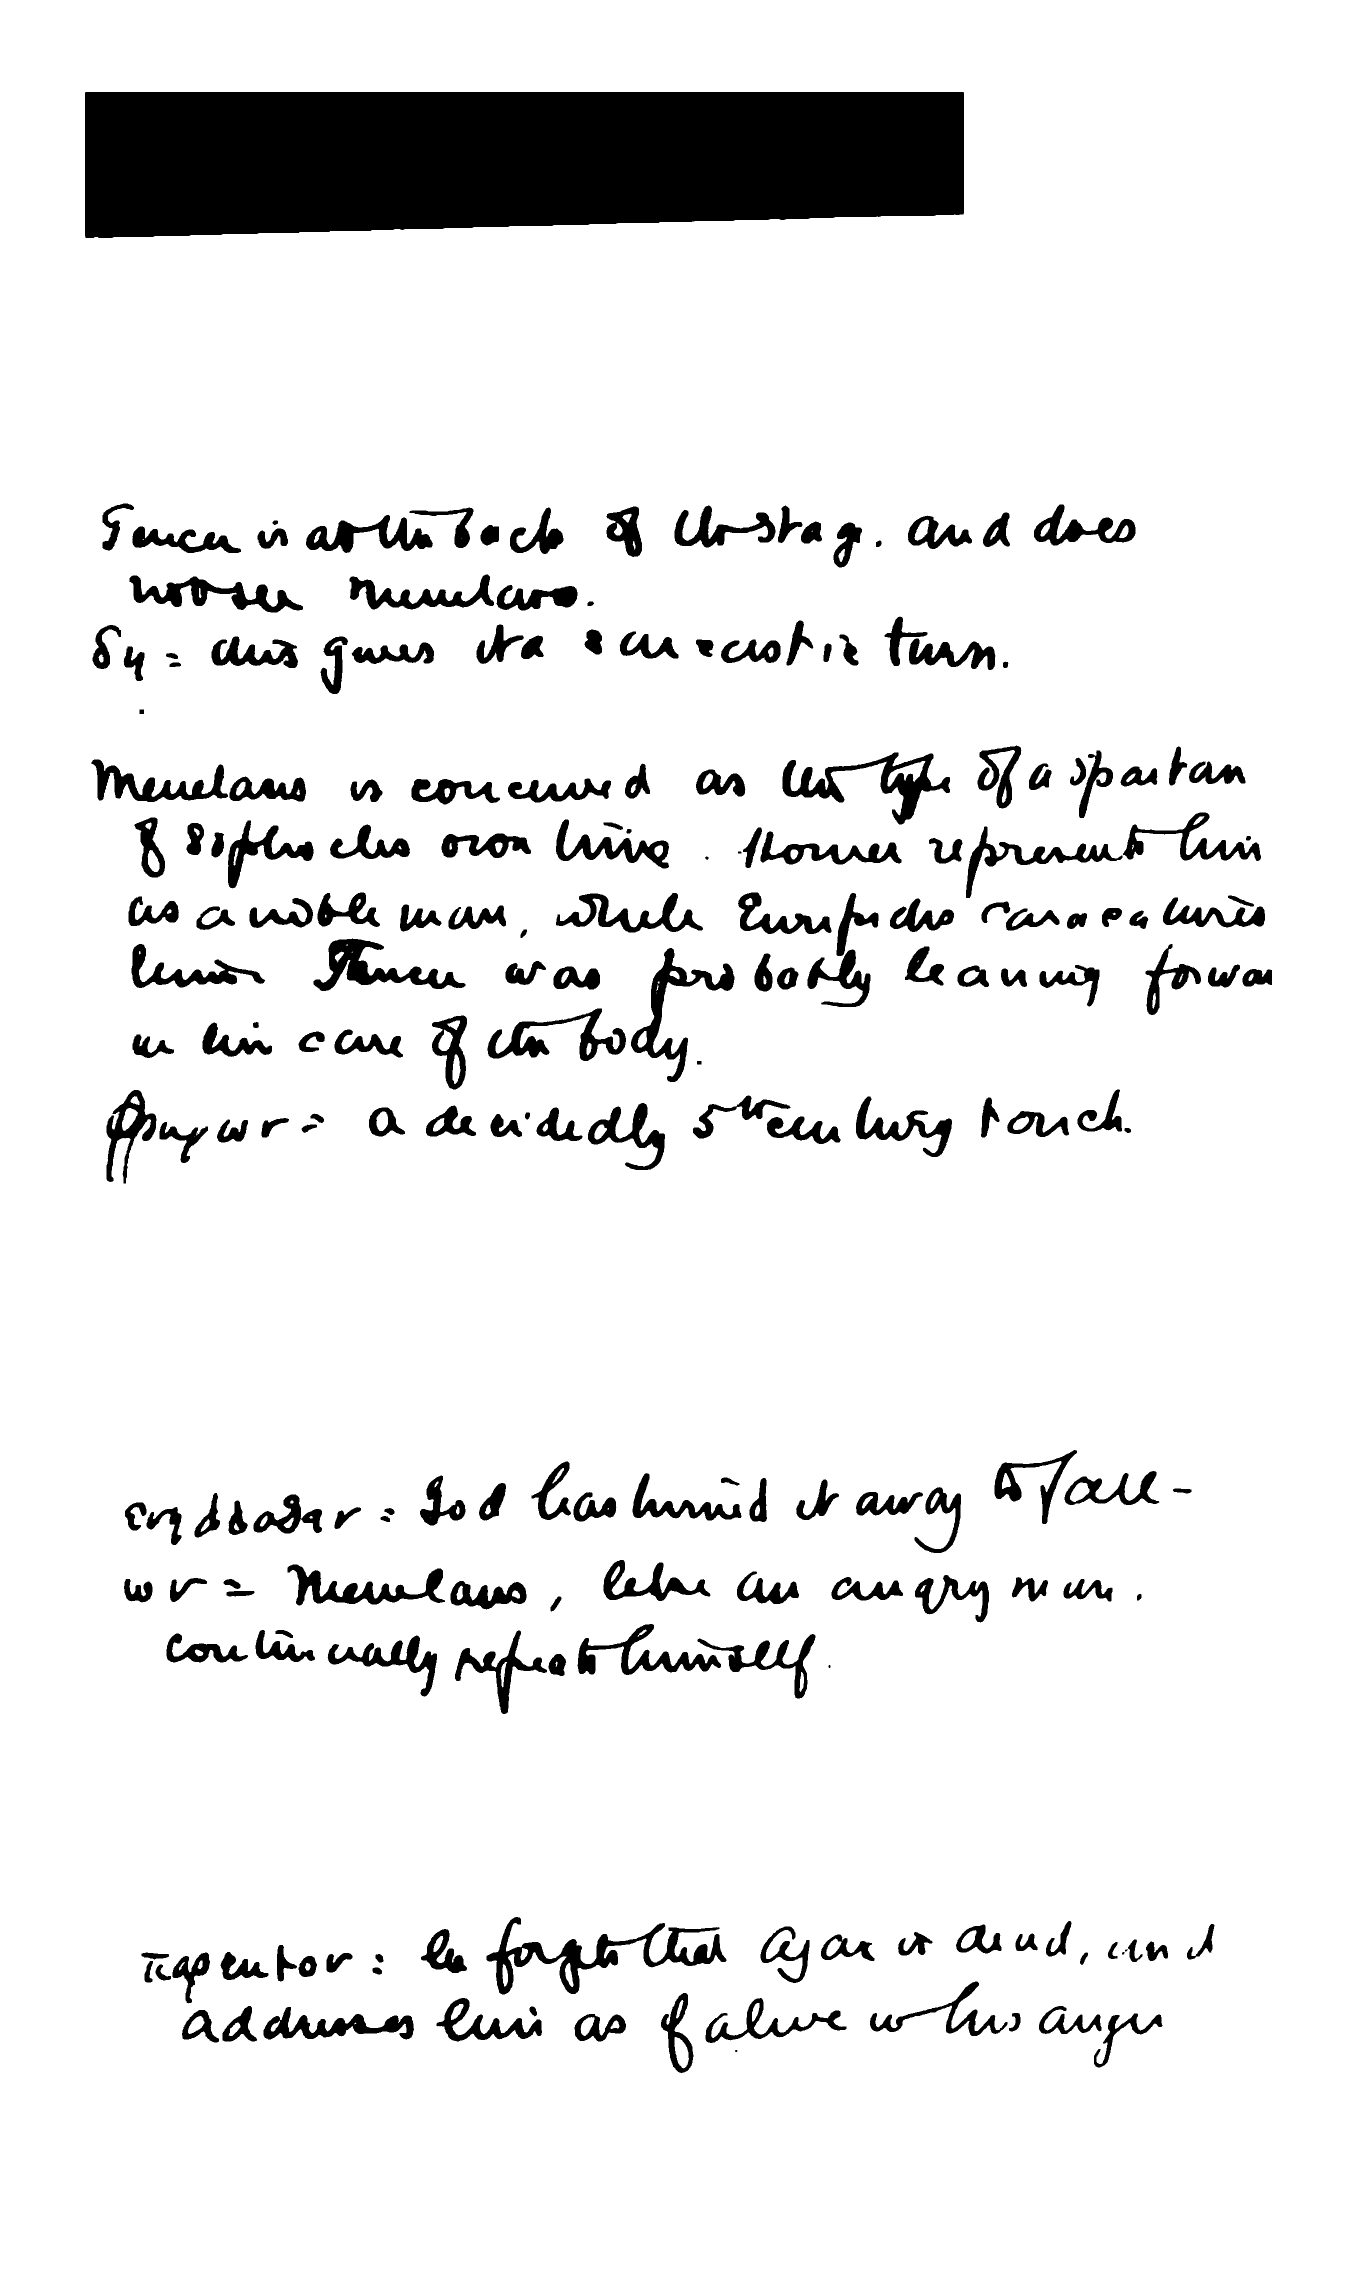 Teucer is at the back of the stage. and does
not see Menelaus.
δη = this gives it a sarcastic turn.
Menelaus is conceived as the type of a spartan
of Sophocles own time. Homer represents him
as a noble man, while Euripides caracatures
him. Teucer was probably leaning forwar
in his care of the body.
= a decidedly 5th century touch.
= God has turned it away to fall -
ων = Menelaus, like an angry man.
continually repeats himself.
παρενtον: he forgets that Ajax is dead, and
addresses him as if alive in his anger